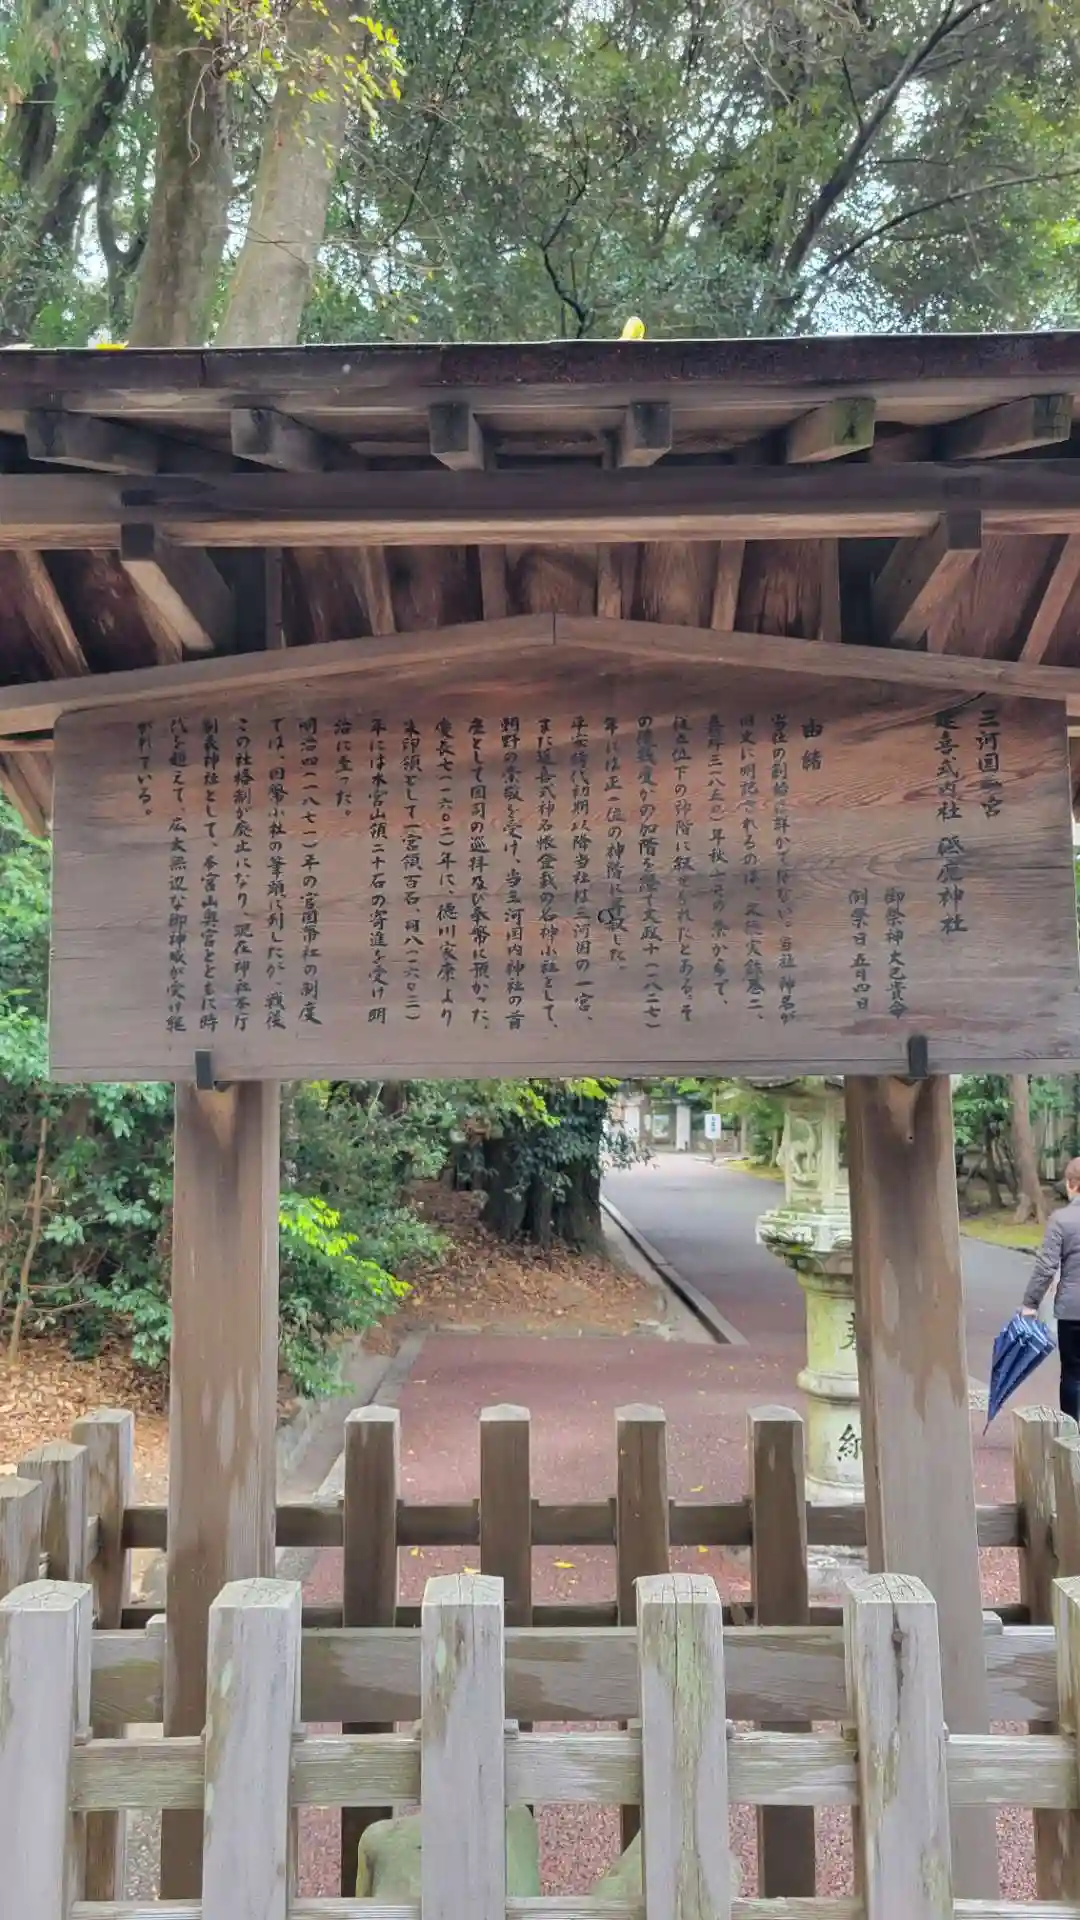 三河国一宮
延喜式内社 砥鹿神社
御祭神 大己貴命
例祭日 五月四日
由緒
当社の創始は詳かではない。当社神名が
国史に明記されるのは、文徳実録巻二、
嘉祥三(八五〇)年秋七月の条からで、
従五位下の神階に叙せられたとある。そ
の後幾度かの加階を経て文政十(一八二七)
年には正一位の神階に昇叙した。
平安時代初期以降当社は三河国の一宮、
また延喜式神名帳登載の名神小社として、
朝野の崇敬を受け、当三河国内神社の首
座として国司の巡拝及び奉幣に預かった。
慶長七(一六〇二)年に、徳川家康より
朱印領として一宮領百石、同八(一六〇三)
年には本宮山領二十石の寄進を受け明
治に至った。
明治四(一八七一)年の官国幣社の制度
では、国幣小社の筆頭に列したが、戦後
この社格制が廃止になり、現在神社本庁
別表神社として、本宮山奥宮とともに時
代を超えて、広大無辺な御神威が受け継
がれている。
奉
納